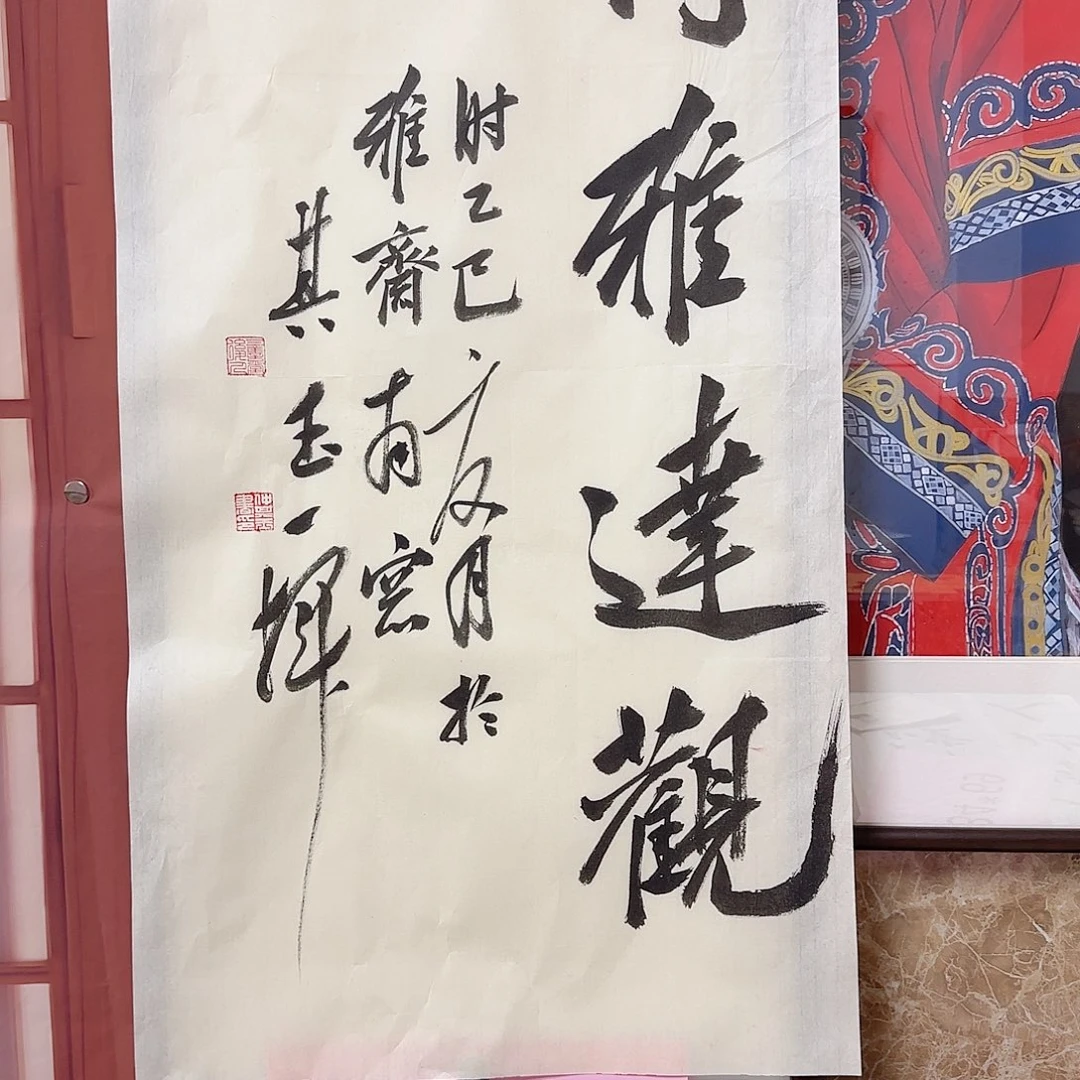 雅達觀
时乙巳廣月於
雅齋南窓
其玉一輝